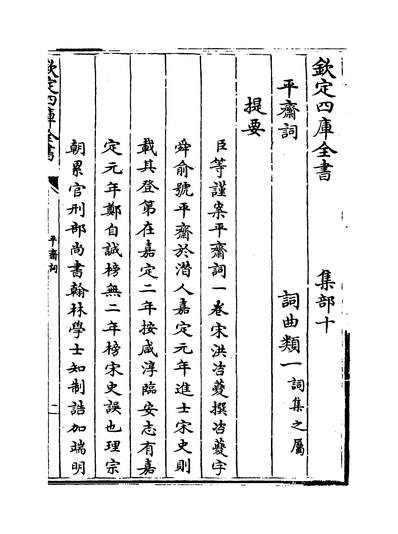 欽定四庫全書　集部十
平齋詞　詞曲類一詞集之屬
提要
臣等謹案平齋詞一卷宋洪咨夔撰咨夔字
舜俞號平齋於潛人嘉定元年進士宋史則
載其登第在嘉定二年按咸淳臨安志有嘉
定元年鄭自誠榜無二年榜宋史誤也理宗
朝累官刑部尚書翰林學士知制誥加端明
欽定四庫全書
平齋詞